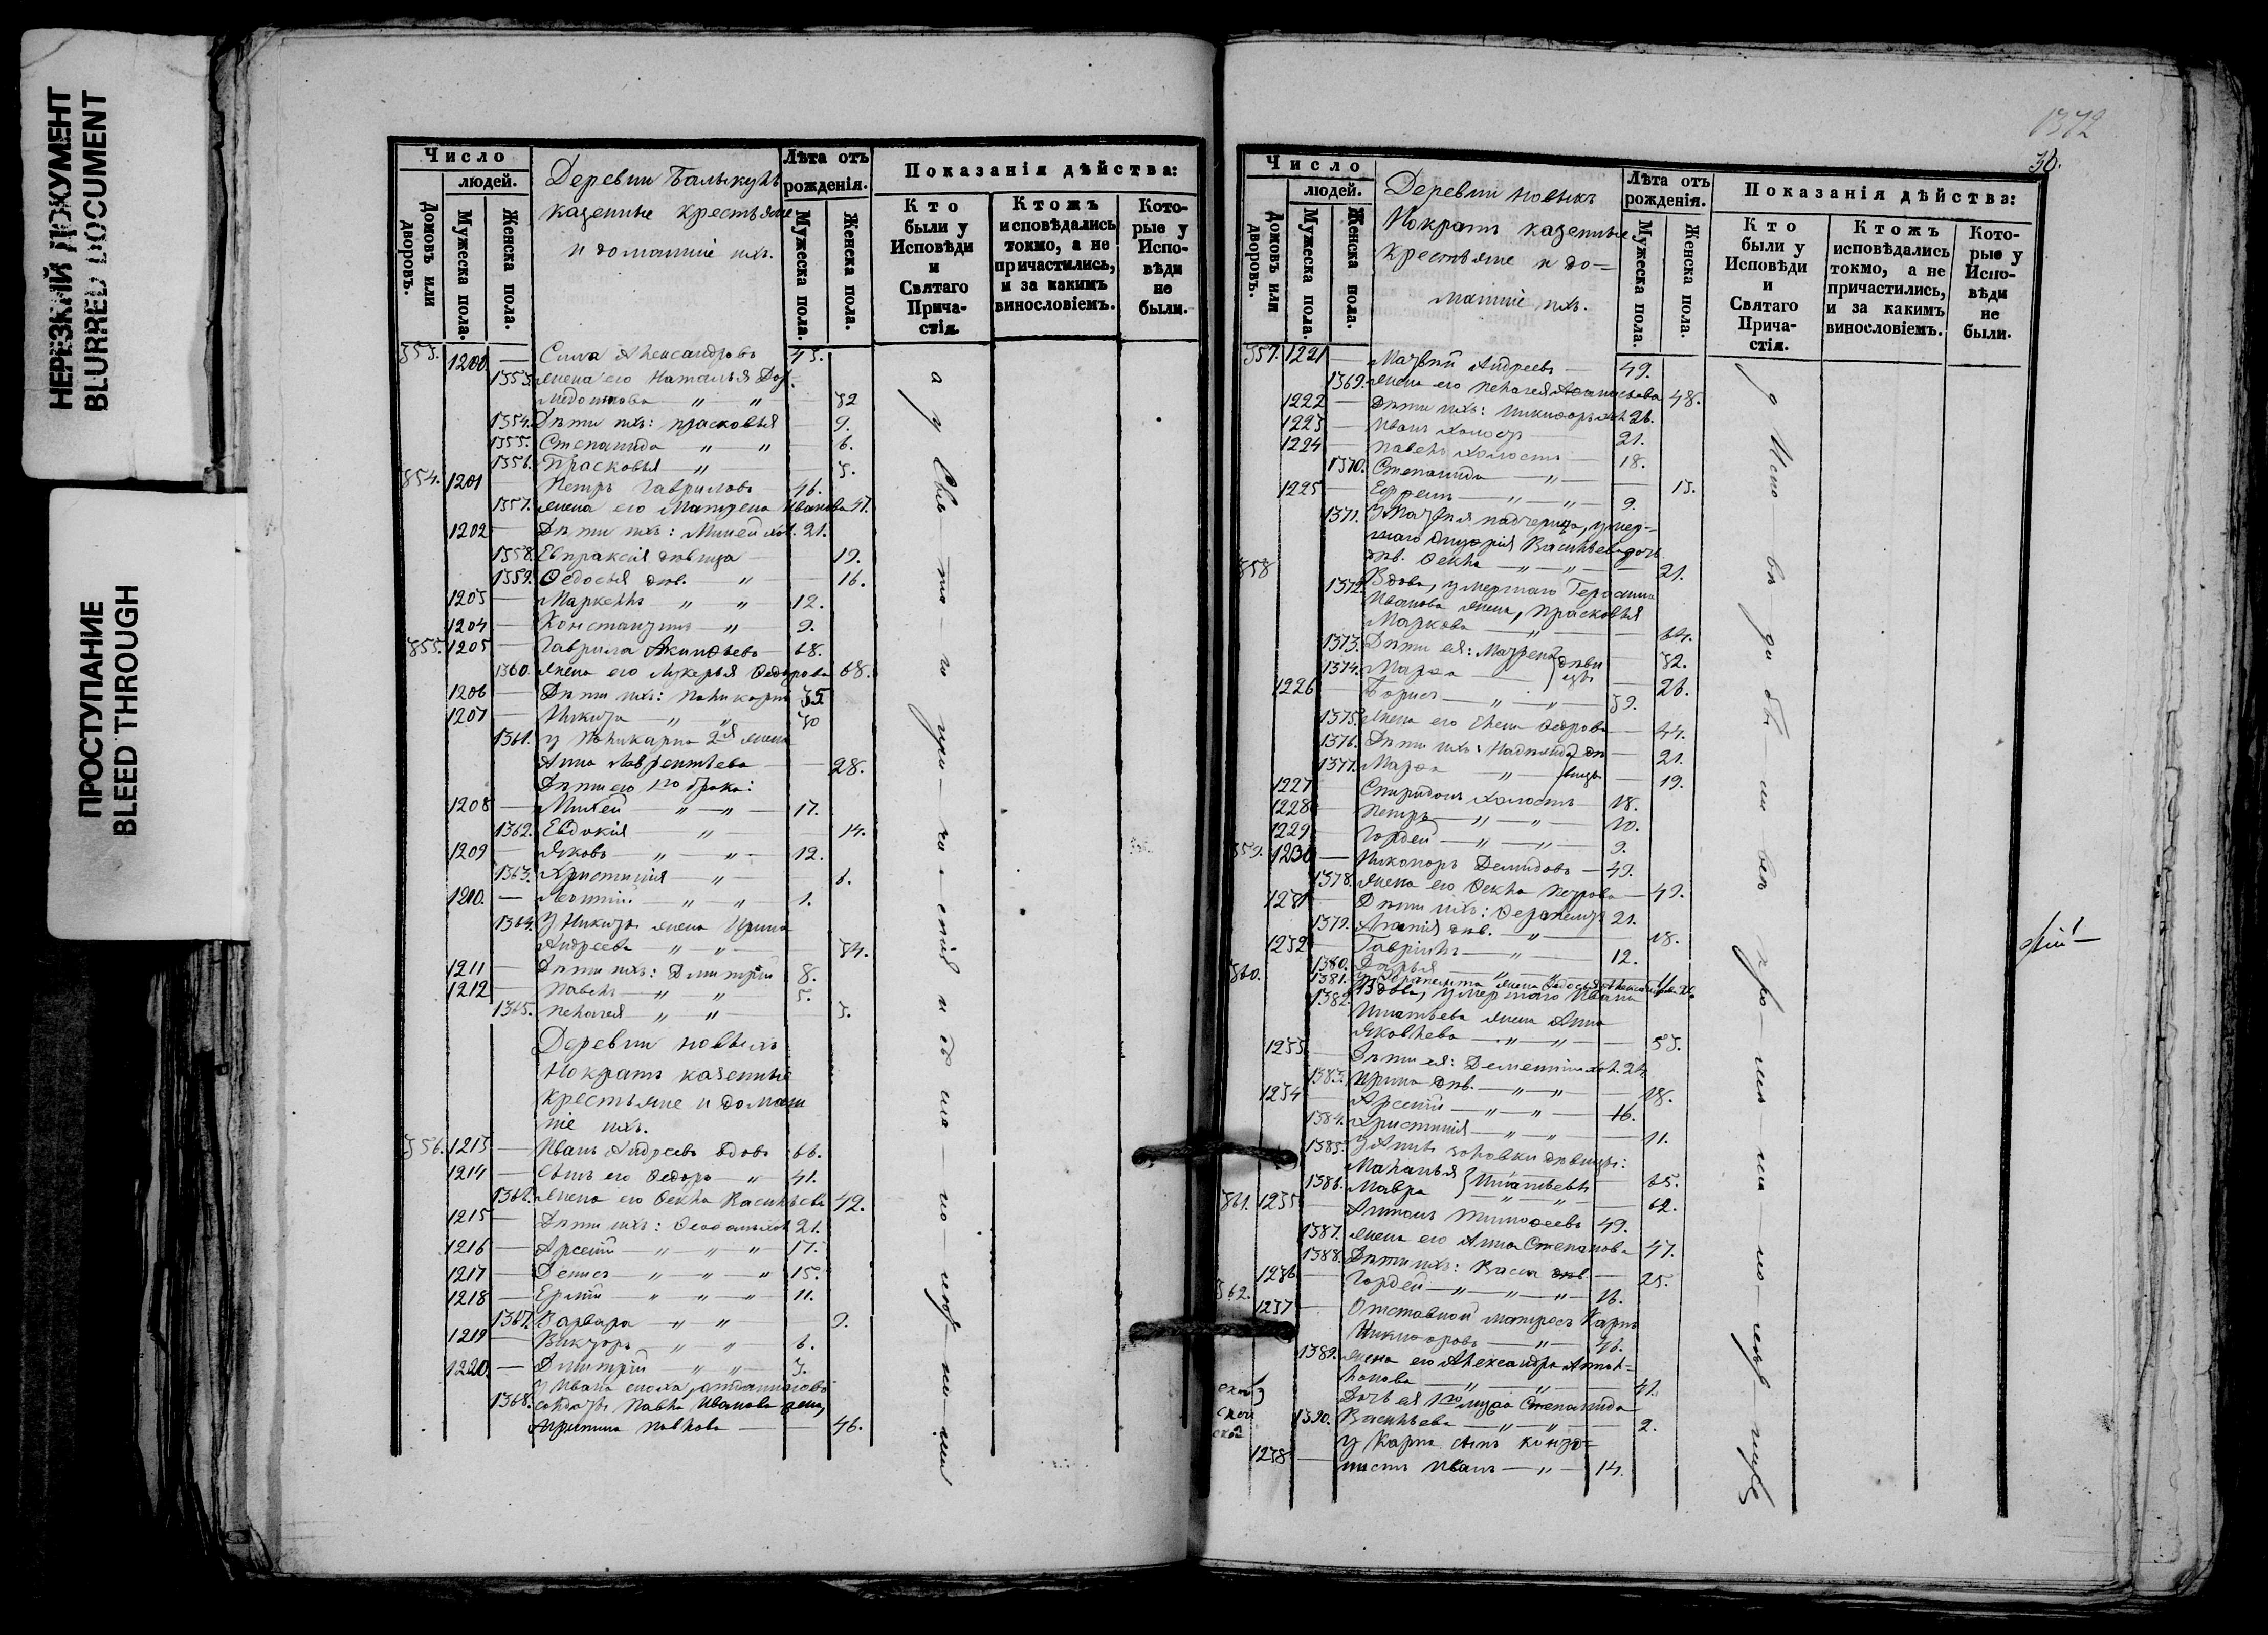 НЕРЕЗКИЙ ДОКУМЕНТ
BLURRED DOCUMENT
ПРОСТУПАНИЕ
BLEED THROUGH
Число
людей.
Домовъ или дворовъ.
Мужеска пола.
Женска пола.
Деревни
казенные крестьяне
и домашніе ихъ.
Лѣта отъ рожденія.
Мужеска пола.
Женска пола.
Показанія дѣйства:
Кто были у Исповѣди и Святаго Причастія.
Ктожъ исповѣдались токмо, а не причастились, и за какимъ винословіемъ.
Которые у Исповѣди не были.
353. 1200 — Сила Александровъ 43.
1353. жена его Наталья
— 32
1354. Дѣти ихъ: Прасковья — 9.
1355. Степанида „ „ 6.
1356. Прасковья „ 3.
354. 1201 Петръ Гавриловъ 46.
1357. жена его Матрена Иванова 47.
1202 — Дѣти ихъ: хол. 21.
1358. Евпраксія дѣвица 19.
1359. Ѳедосья дѣв. „ 16.
1203 — Маркеллъ „ „ 12.
1204 — Константинъ „ 9.
355. 1205 — Гаврила 68.
1360. жена его Лукерья Ѳедорова 68.
1206 — Дѣти ихъ: Поликарпъ 35.
1207 — Никита „ „ 30
1361. у Поликарпа 2я жена
Анна Лаврентьева — 28.
Дѣти его 1го брака:
1208 — Михей „ „ 17.
1362. Евдокія „ 14.
1209 — Яковъ „ „ 12.
1363. Христинія „ 6.
1210. — Леонтій „ „ 1.
1364. У Никиты жена Ирина
Андреева „ „ 34.
1211 — Дѣти ихъ: Димитрій 8.
1212 — Павелъ „ „ 5.
1365. Пелагея „ „ 3.
Деревни Новыхъ
казенные
крестьяне и домаш
ніе ихъ.
356. 1213 — Иванъ Андреевъ вдовъ 66.
1214 — Сынъ его Ѳедоръ „ 41.
1366. жена его Ѳекла Васильева 42.
1215 — Дѣти ихъ: 21.
1216 — Арсеній „ „ „ 17.
1217 — Денисъ „ „ „ 15.
1218 — „ „ „ 11.
1367. Варвара „ „ 9.
1219 — Викторъ „ „ 6.
1220. — Димитрій „ „ 3.
у Ивана сноха,
1368. Павла Иванова жена,
Агрипина Павлова — 46.
1372
36.
Число
людей.
Домовъ или дворовъ.
Мужеска пола.
Женска пола.
Деревни Новыхъ
казенные
крестьяне и до=
машніе ихъ.
Лѣта отъ рожденія.
Мужеска пола.
Женска пола.
Показанія дѣйства:
Кто были у Исповѣди и Святаго Причастія.
Ктожъ исповѣдались токмо, а не причастились, и за какимъ винословіемъ.
Которые у Исповѣди не были.
357. 1221 — Матвѣй Андреевъ — 49.
1369. жена его Пелагея 48.
1222 — Дѣти ихъ: Никифоръ 26.
1223 — Иванъ холостъ 21.
1224 — Павелъ холостъ — 18.
1370. Степанида „ 13.
1225 — Ефремъ „ „ 9.
1371. У Матвѣя падчерица, умер=
шаго Васильева дочь
дѣв. Ѳекла „ „ 21.
358 1372. Вдова, умершаго Герасима
Иванова жена, Прасковья
Маркова „ 64.
1373. Дѣти ея: Матрена 32.
1374. Марѳа 26.
1226 Борисъ „ „ 39.
1375. жена его Елена 44.
1376. Дѣти ихъ: 21.
1377. Марѳа „ 19.
1227 Спиридонъ холостъ 18.
1228 — Петръ „ „ 10.
1229 Гордей „ „ 9.
359. 1230 — Никоноръ Демидовъ — 49.
1378. жена его Ѳекла Петрова — 49.
1231 — Дѣти ихъ: 21.
1379. дѣв. „ 18.
1232 — Гавріилъ „ 12.
1380. Дарья
1381.
360. 1382. Вдова, умершаго Ивана
Игнатьева жена Анна
Яковлева „ „ 53.
1233 — Дѣти ея: Дементій хол. 24.
1383. Ирина дѣв. „ „ 18.
1234 — Арсеній „ „ 16.
1384. Христинія „ „ 11.
1385. у Анны золовки дѣвицы:
Маланья 65.
1386. Мавра } Игнатьевы 62.
361. 1235 — Антонъ Тимоѳеевъ 49.
1387. жена его Анна Степанова 47.
1388. Дѣти ихъ: дѣв. 25.
1236 — Гордей „ „ „ 16.
362. 1237 — Отставной матросъ Карпъ
Никифоровъ „ 46.
1389. жена его Александра
„ „ 41.
Дочь ея 1го мужа Степанида
1390. Васильева „ „ 2.
у Карпа сынъ кантo=
1238 — нистъ Иванъ „ 14.